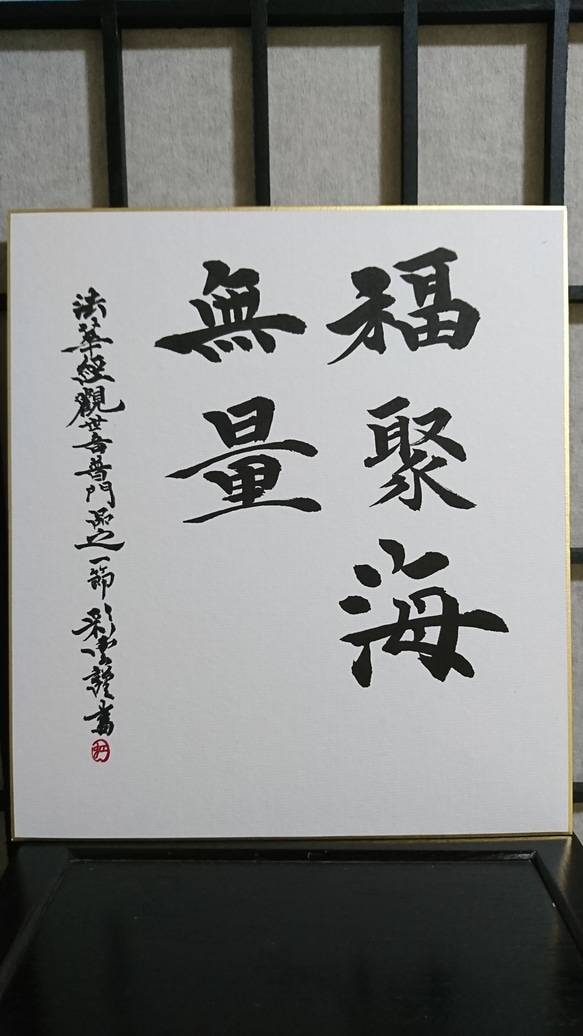 福聚海
無量
法華経觀世音普門品之一節 彩雲謹書